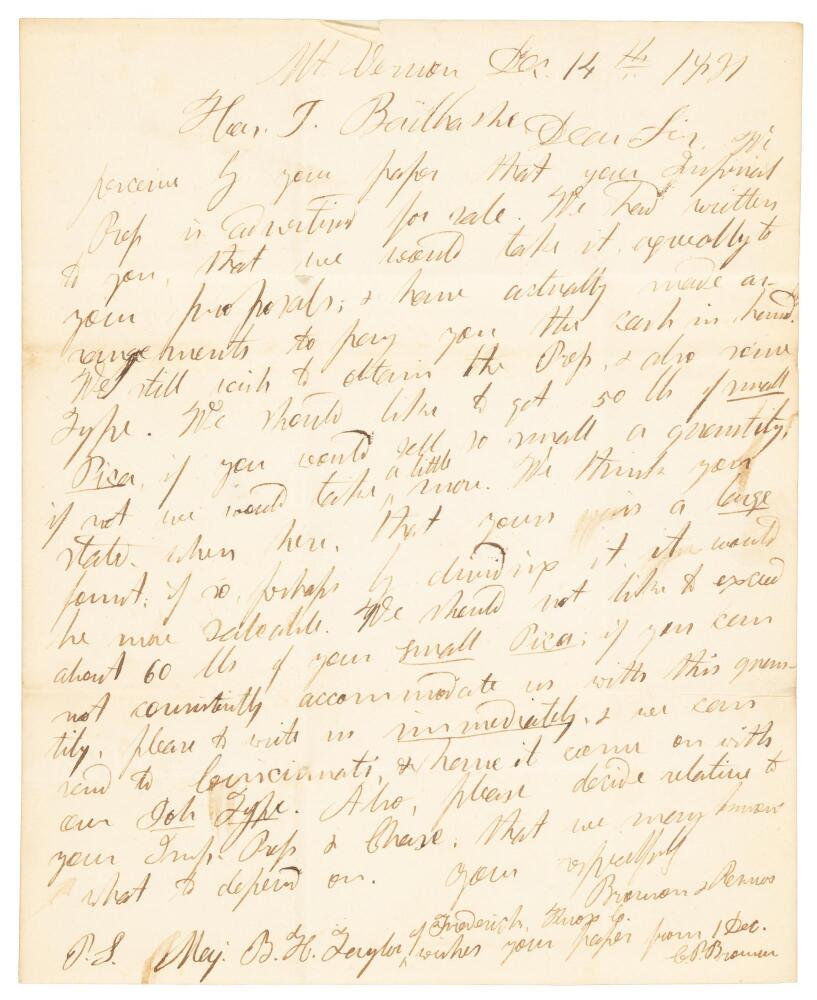 Mt Vernon Dec. 14th 1831
Hon. T. Backhashe Dear Sir, We
perceive by your paper that your Imperial
Press is advertised for sale. We had written
to you, that we would take it, agreeably to
your proposals; & have actually made ar-
rangements to pay you the cash in hand.
We still wish to obtain the Press, & also some
Type. We should like to get 50 lbs of small
Pica, if you would sell so small a quantity,
if not we would take a little more. We think you
stated, when here, that yours was a large
fount; if so, perhaps by dividing it, it would
be more saleable. We should not like to exceed
about 60 lbs of your small Pica; if you can
not consistently accommodate us with this quan-
tity, please to write us immediately, & we can
send to Cincinnati, & have it come on with
our Job Type. Also, please decide relative to
your Imp. Press & Chase, that we may know
what to depend on. Yours respectfully
Bronson &
P.S. Maj. B. H. Taylor of Frederick, Knox Co. wishes your paper from 1 Dec.
C. P. Bronson